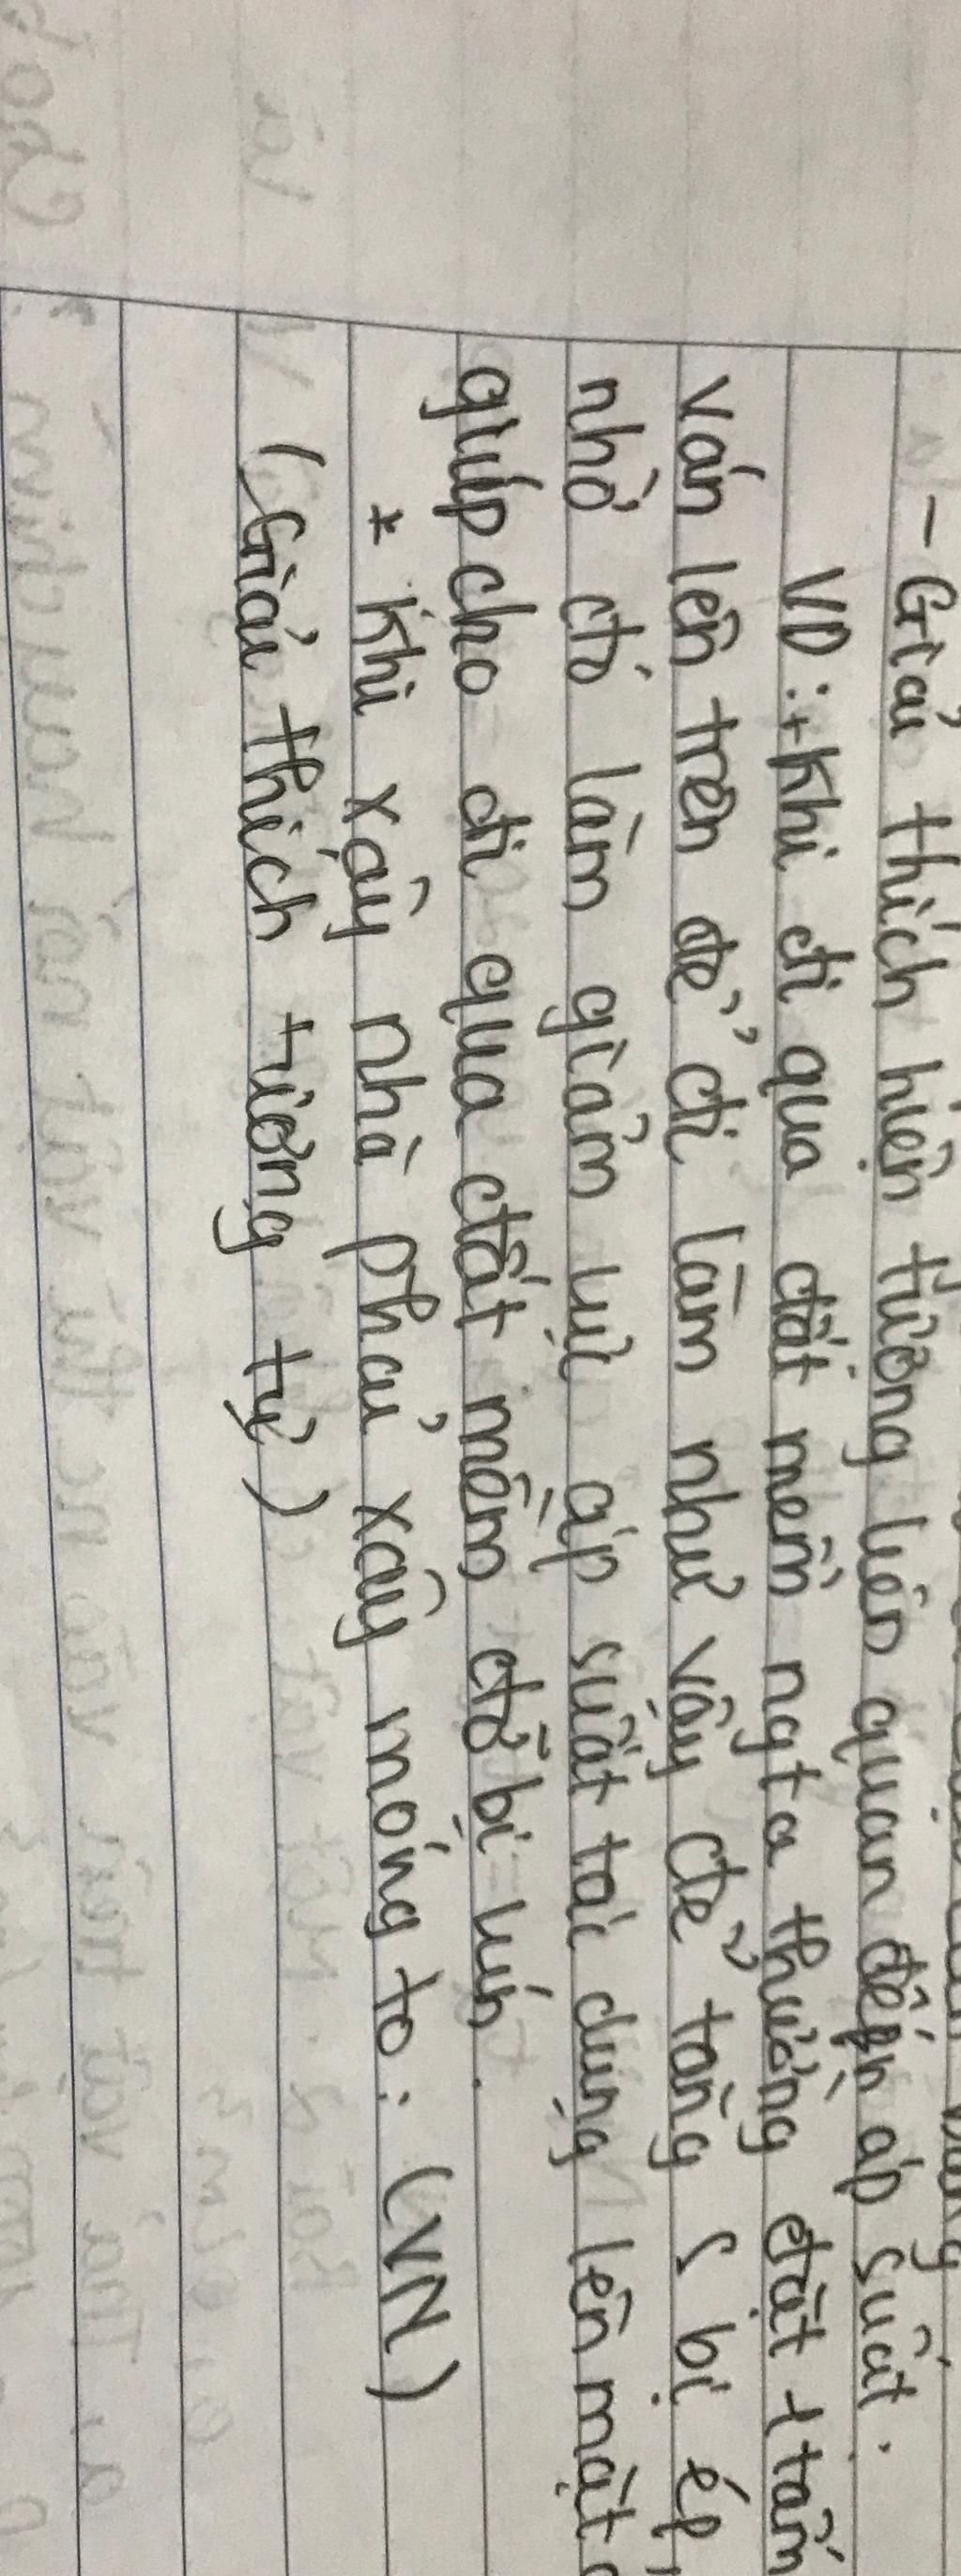 - Giải thích hiện tượng liên quan đến áp suất.
VD: + Khi đi qua đất mềm ngta thường đặt 1 tấm
ván lên trên để đi làm như vậy để tăng S bị ép,
nhờ đó làm giảm lực áp suất tác dụng lên mặt
giúp cho đi qua đất mềm đỡ bị lún.
* Khi xây nhà phải xây móng to: (VN)
(Giải thích tương tự)